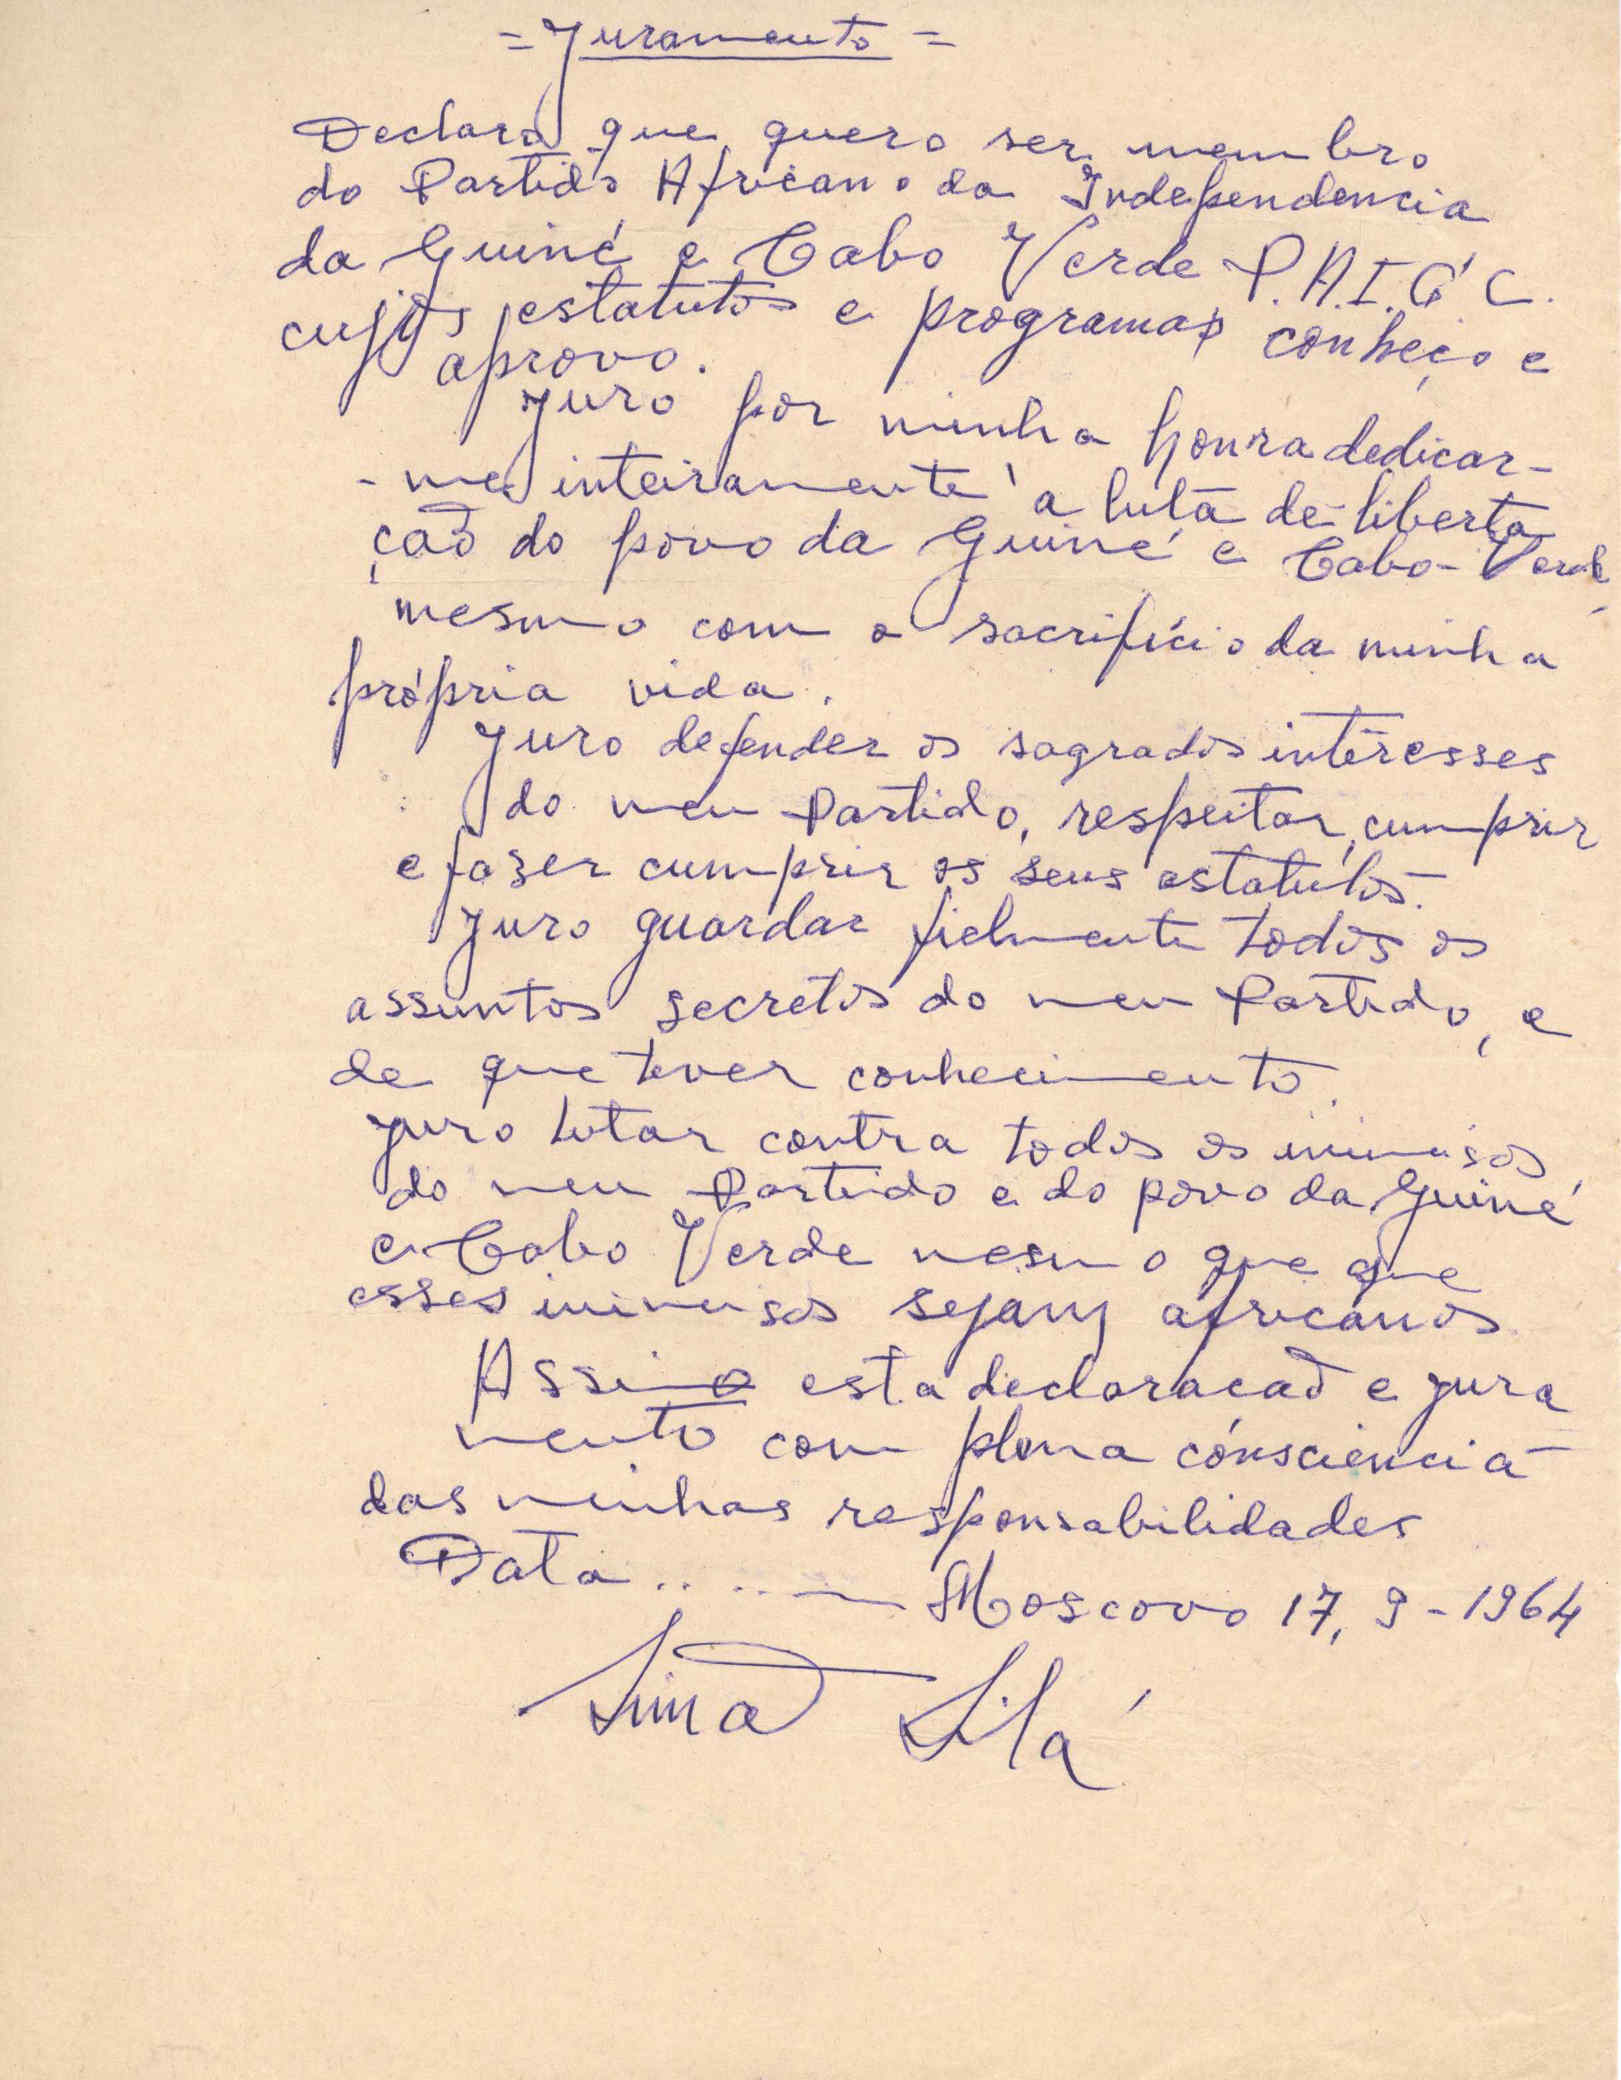 = Juramento =
Declaro que quero ser membro
do Partido Africano da Independencia
da Guiné e Cabo Verde P.A.I.G.C.
cujos estatutos e programas conheço e
aprovo.
Juro por minha honra dedicar-
-me inteiramente à luta de liberta
ção do povo da Guiné e Cabo-Verde
mesmo com o sacrifício da minha
própria vida.
Juro defender os sagrados interesses
do meu Partido, respeitar, cumprir
e fazer cumprir os seus estatutos.
Juro guardar fielmente todos os
assuntos secretos do meu Partido, e
de que tever conhecimento.
Juro lutar contra todos os inimigos
do meu Partido e do povo da Guiné
e Cabo Verde mesmo que que
esses inimigos sejam africanos
Assino esta declaracaõ e jura
mento com plena consciencia
das minhas responsabilidades
Data ..... Moscovo 17, 9 - 1964